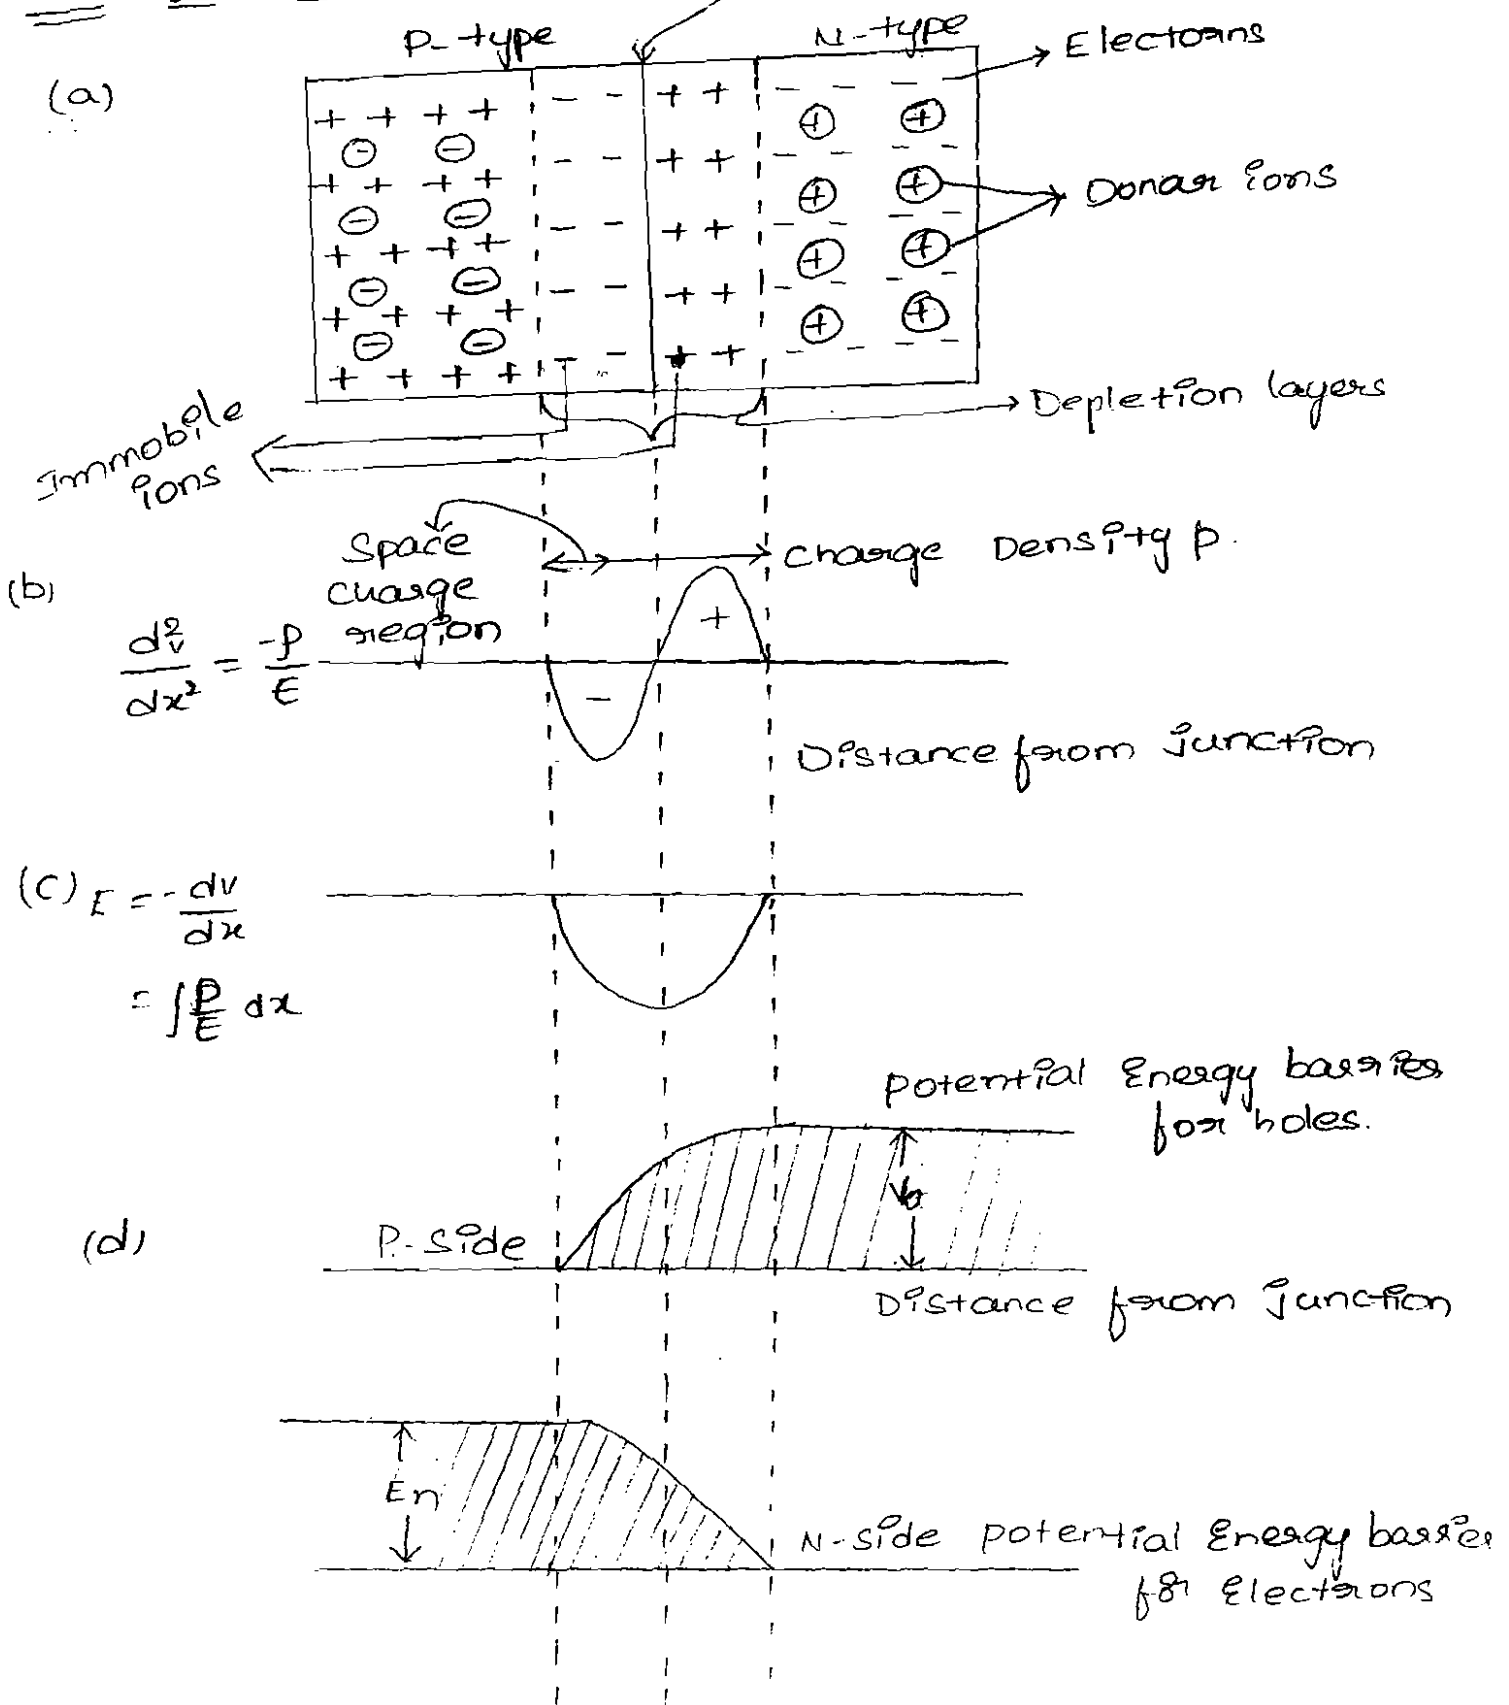 P-type
N-type
Electoans
(a)
Donar ions
Depletion layers
Immobile
ions
Space
charge
region
Charge Density ρ.
(b)
d²v/dx² = -ρ/ε
+
-
Distance from junction
(c) E = -dv/dx
= ∫ρ/ε dx
potential Energy barrier
for holes.
Vo
(d)
P-side
Distance from junction
En
N-side potential Energy barrier
for Electrons